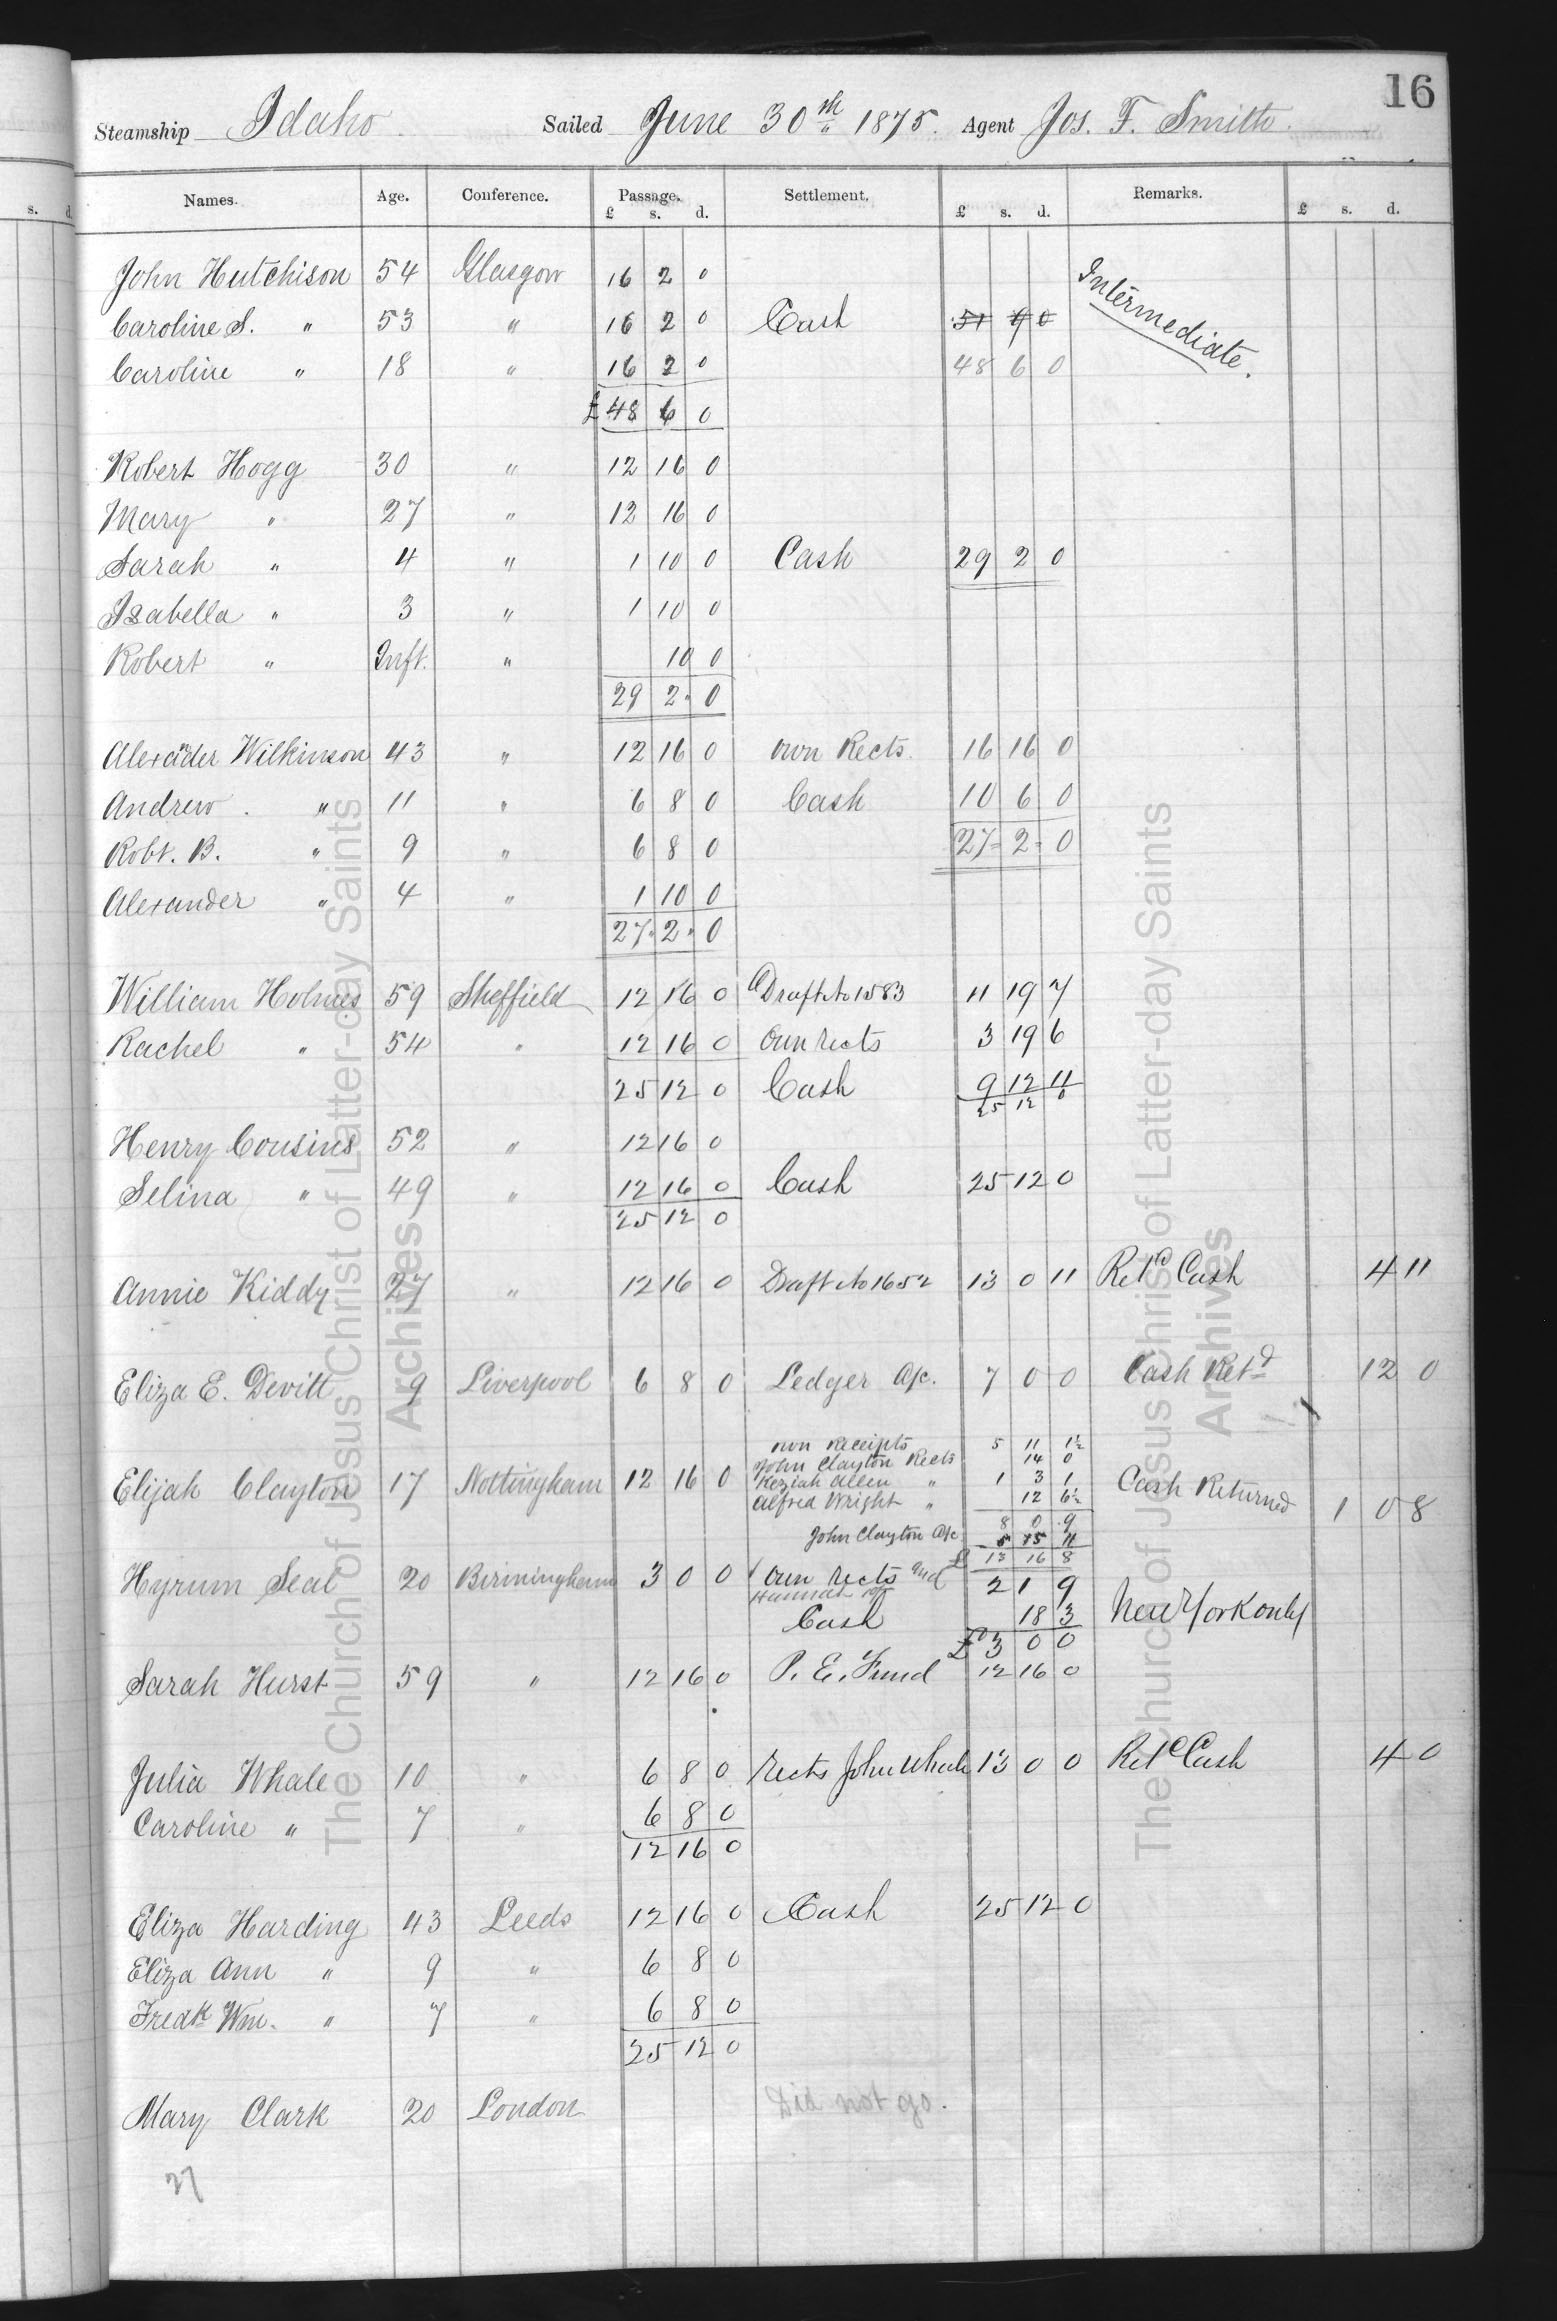 16
Steamship Idaho Sailed June 30th 1875. Agent Jos. F. Smith.
Names. Age. Conference. Passage. Settlement. Remarks.
s. d. £ s. d. £ s. d. £ s. d.
John Hutchison 54 Glasgow 16 2 0
Caroline S. " 53 " 16 2 0 Cash 51 9 0 Intermediate.
Caroline " 18 " 16 2 0 48 6 0
£48 6 0
Robert Hogg 30 " 12 16 0
Mary " 27 " 12 16 0
Sarah " 4 " 1 10 0 Cash 29 2 0
Isabella " 3 " 1 10 0
Robert " Inft. " 10 0
29 2 0
Alexander Wilkinson 43 " 12 16 0 own Rects. 16 16 0
Andrew " 11 " 6 8 0 Cash 10 6 0
Robt. B. " 9 " 6 8 0 27 2 0
Alexander " 4 " 1 10 0
27 2 0
William Holmes 59 Sheffield 12 16 0 Draft No 1583 11 19 7
Rachel " 54 " 12 16 0 Own rects 3 19 6
25 12 0 Cash 9 12 11
25 12 0
Henry Cousins 52 " 12 16 0
Selina " 49 " 12 16 0 Cash 25 12 0
25 12 0
Annie Kiddy 27 " 12 16 0 Draft No 1652 13 0 11 Retd Cash 4 11
Eliza E. Devitt 9 Liverpool 6 8 0 Ledger a/c. 7 0 0 Cash Retd 12 0
own Receipts 5 11 1½
John Clayton Rects 14 0
Elijah Clayton 17 Nottingham 12 16 0 Keziah Allen " 1 3 1 Cash Returned 1 0 8
Alfred Wright " 12 6½
8 0 9
John Clayton a/c 5 15 11
£ 13 16 8
Hyrum Seal 20 Birmingham 3 0 0 Own rects and 2 1 9
Hannah
Cash 18 3 New York only
£3 0 0
Sarah Hurst 59 " 12 16 0 P. E. Fund 12 16 0
Julia Whale 10 " 6 8 0 rects John Whale 13 0 0 Retd Cash 4 0
Caroline " 7 " 6 8 0
12 16 0
Eliza Harding 43 Leeds 12 16 0 Cash 25 12 0
Eliza Ann " 9 " 6 8 0
Fredk Wm. " 7 " 6 8 0
25 12 0
Mary Clark 20 London Did not go.
27
The Church of Jesus Christ of Latter-day Saints
Archives
The Church of Jesus Christ of Latter-day Saints
Archives